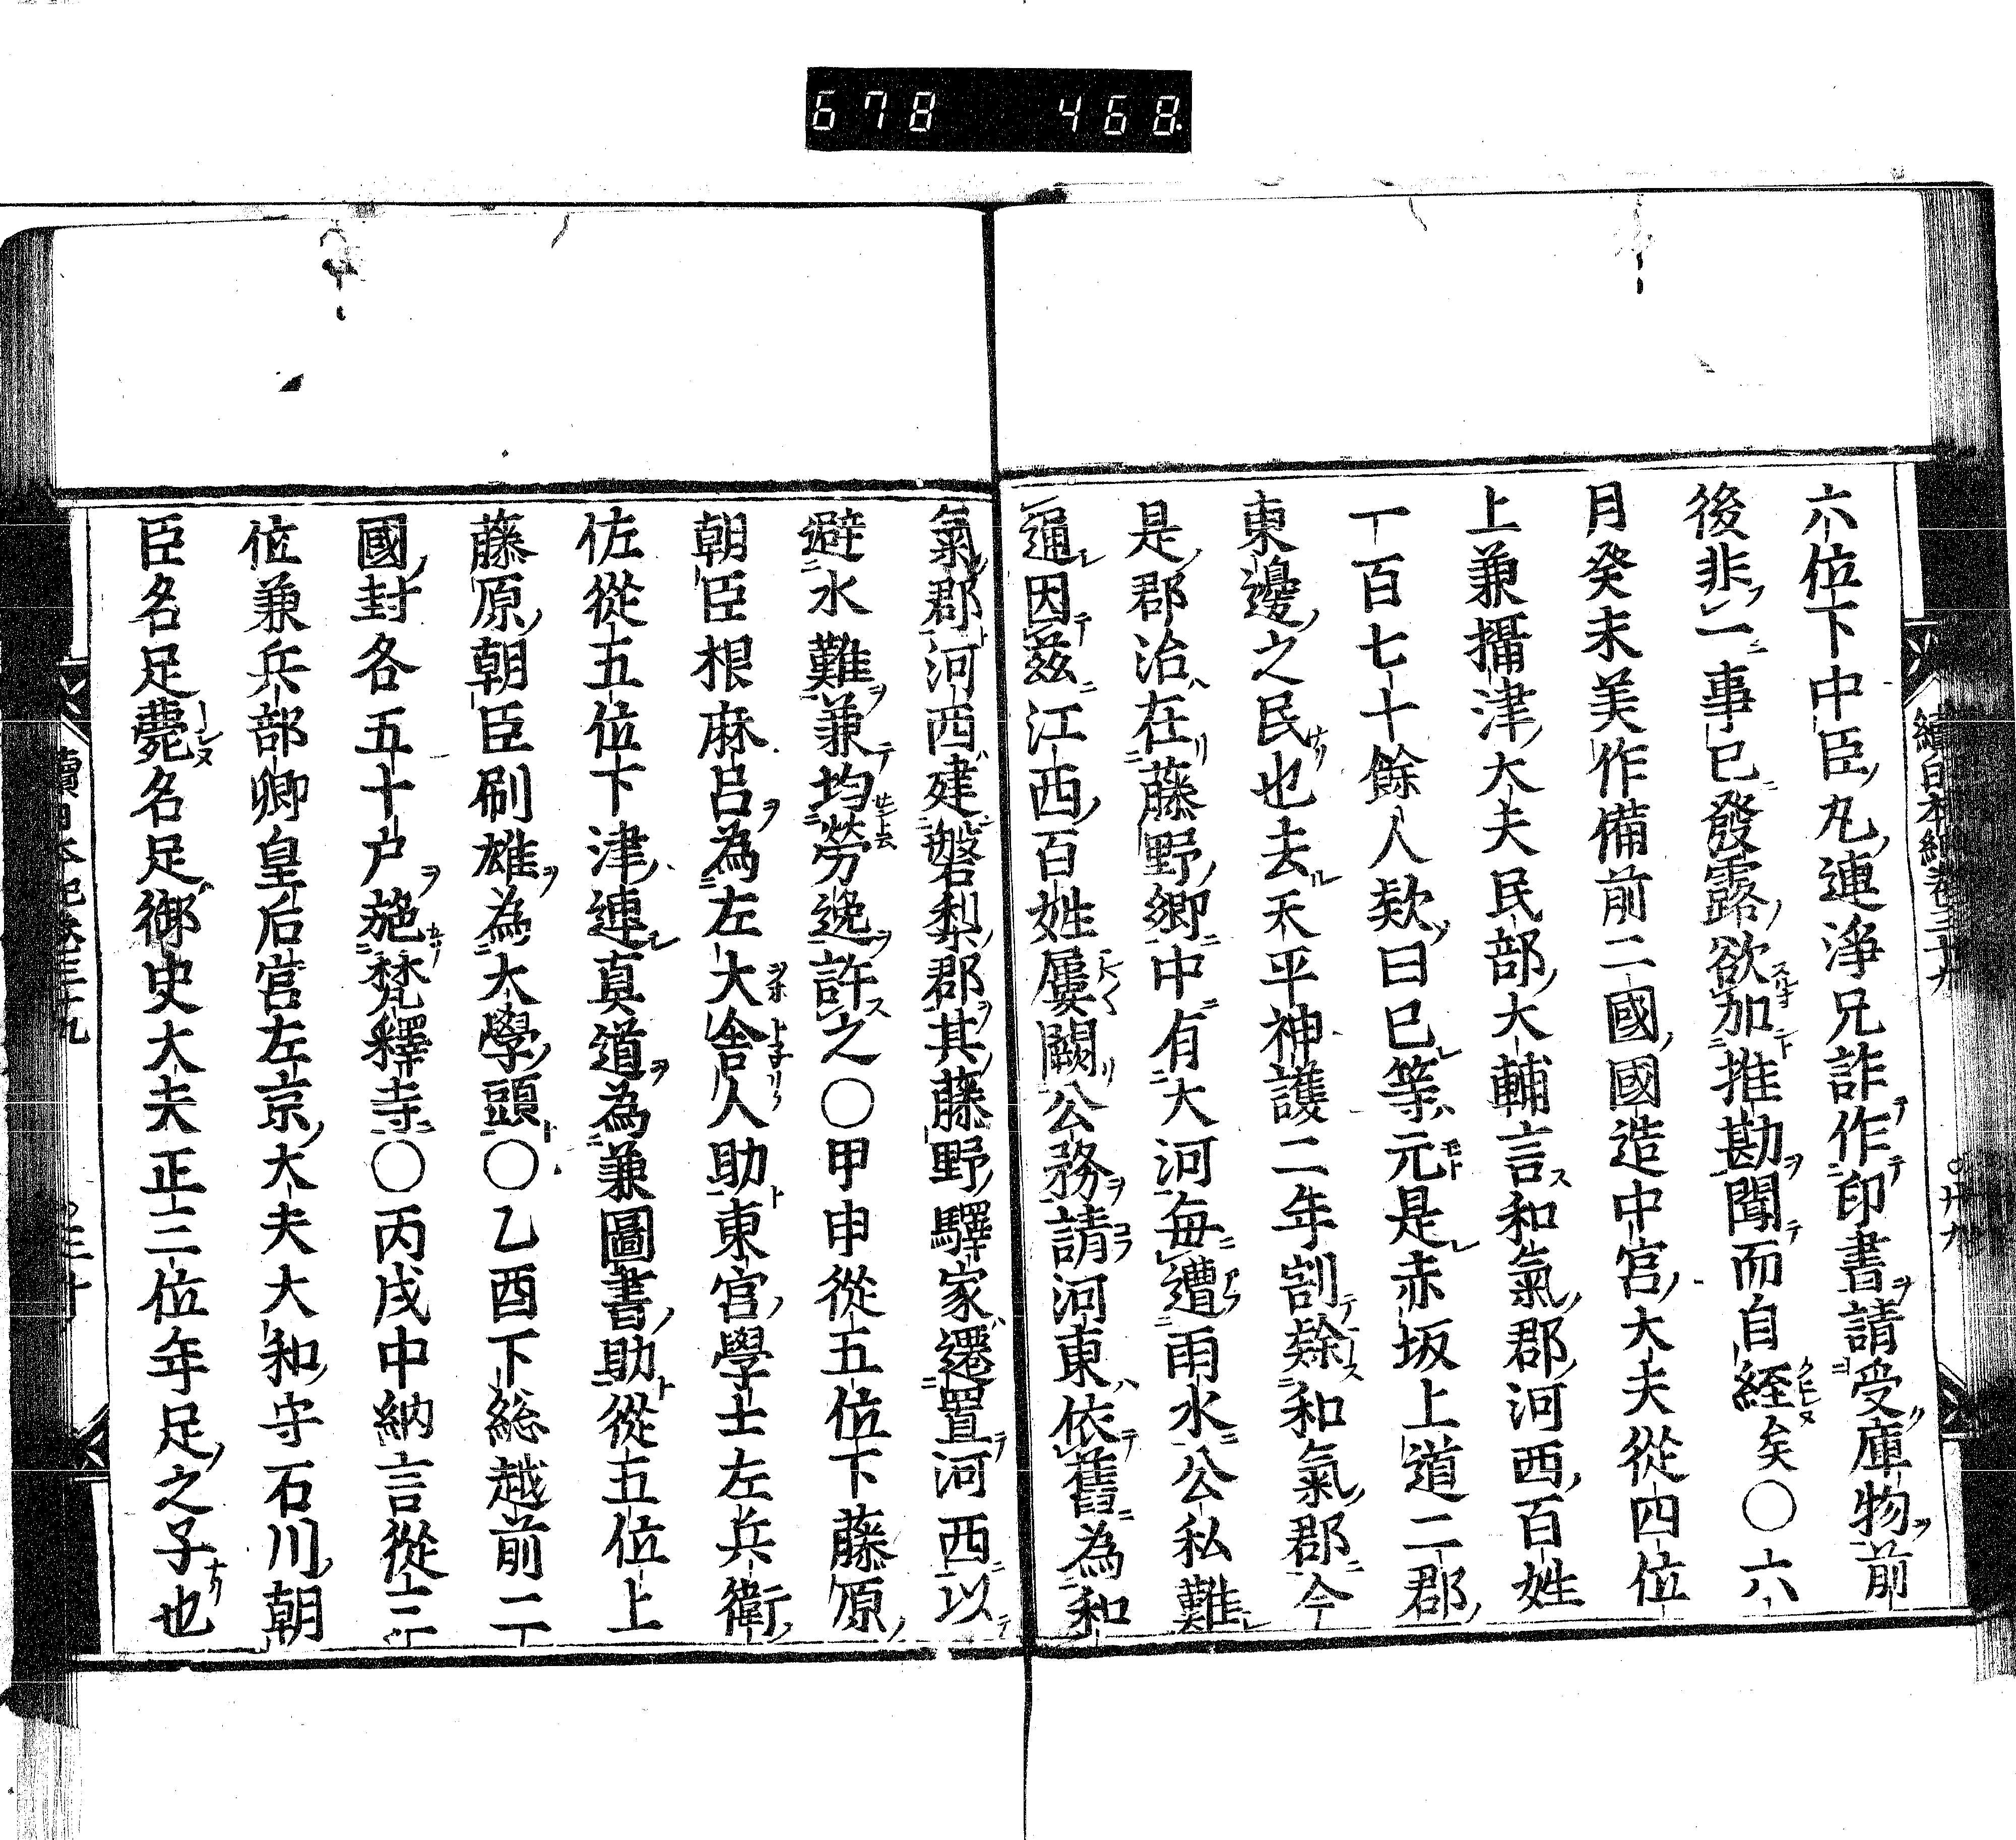 678 468.
六位下中臣丸連浄兄詐作印書請受庫物前
後非一事已發露欲加推勘聞而自経矣〇六
月癸未美作備前二國國造中宮大夫從四位
上兼攝津大夫民部大輔言和氣郡河西百姓
一百七十餘人欵曰巳等元是赤坂上道二郡
東邊之民也去天平神護二年割隸和氣郡今
是郡治在藤野郷中有大河毎遭雨水公私難
通因茲江西百姓屢闕公務請河東依舊為和
氣郡河西建磐梨郡其藤野驛家遷置河西以
避水難兼均勞逸許之〇甲申從五位下藤原
朝臣根麻呂為左大舎人助東宮學士左兵衛
佐從五位下津連真道為兼圖書助從五位上
藤原朝臣刷雄為大學頭〇乙酉下総越前二
國封各五十戸施梵釋寺〇丙戌中納言從三
位兼兵部卿皇后宮左京大夫大和守石川朝
臣名足薨名足御史大夫正三位年足之子也